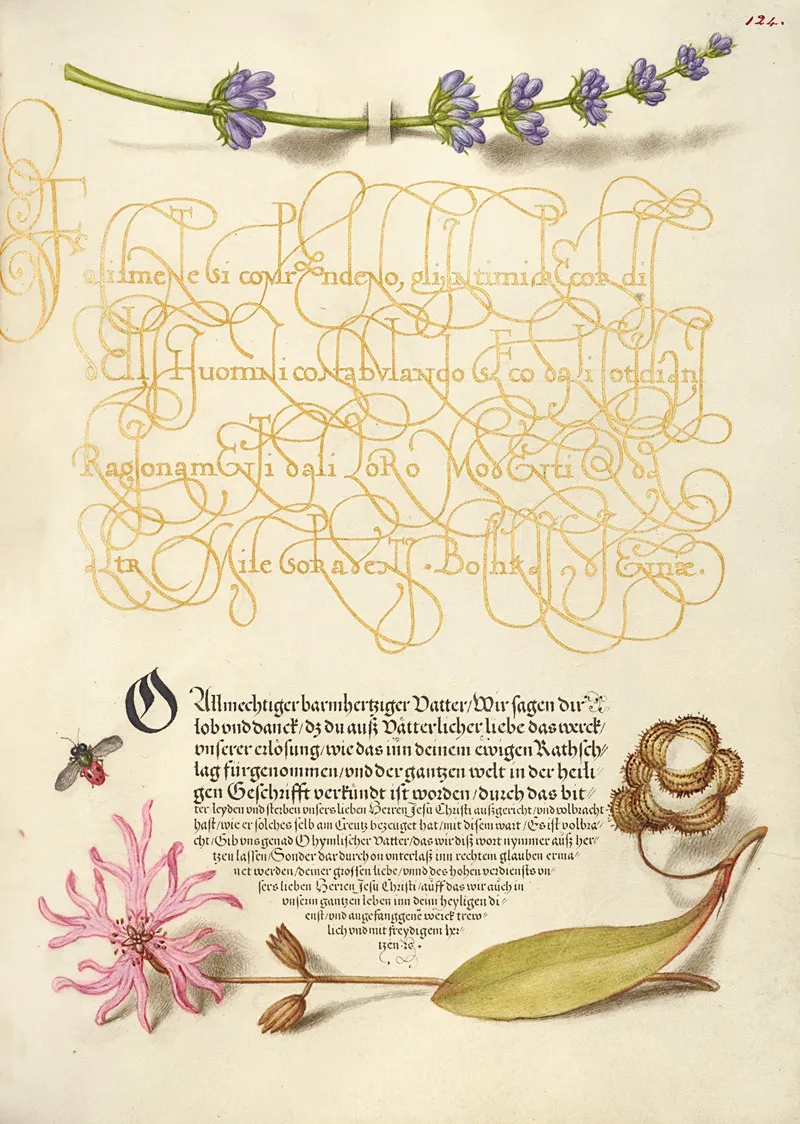 124.
Facilmente si comprendeno, gli intimi secor di
delli Huomini confabulando seco dali
Ragionamenti dali Loro Mod
O Allmechtiger barmhertziger Vatter/Wir sagen dir
lob vnd danck/dz du auß Vätterlicher liebe das werck/
vnserer erlösung/wie das inn deinem ewigen Rathsch/
lag fürgenommen/vnd der gantzen welt in der heili/
gen Geschrifft verkündt ist worden/durch das bit/
ter leyden vnd sterben vnsers lieben Herren Jesu Christi außgericht/vnd volbracht
hast/wie er solches selb am Creutz bezeuget hat/mit disem wart/Es ist volbra/
cht/Gib vns genad O hymlischer Vatter/das wir diß wort nymmer auß her/
tzen lassen/Sonder dardurch on vnterlaß inn rechtem glauben erma/
net werden/deiner grossen liebe/vnnd des hohen verdiensts vn/
sers lieben Herren Jesu Christi/auff das wir auch in
vnserm gantzen leben inn deim heyligen di/
enst/vnd angefanggene werck trew/
lich vnd mit freydigem her/
tzen